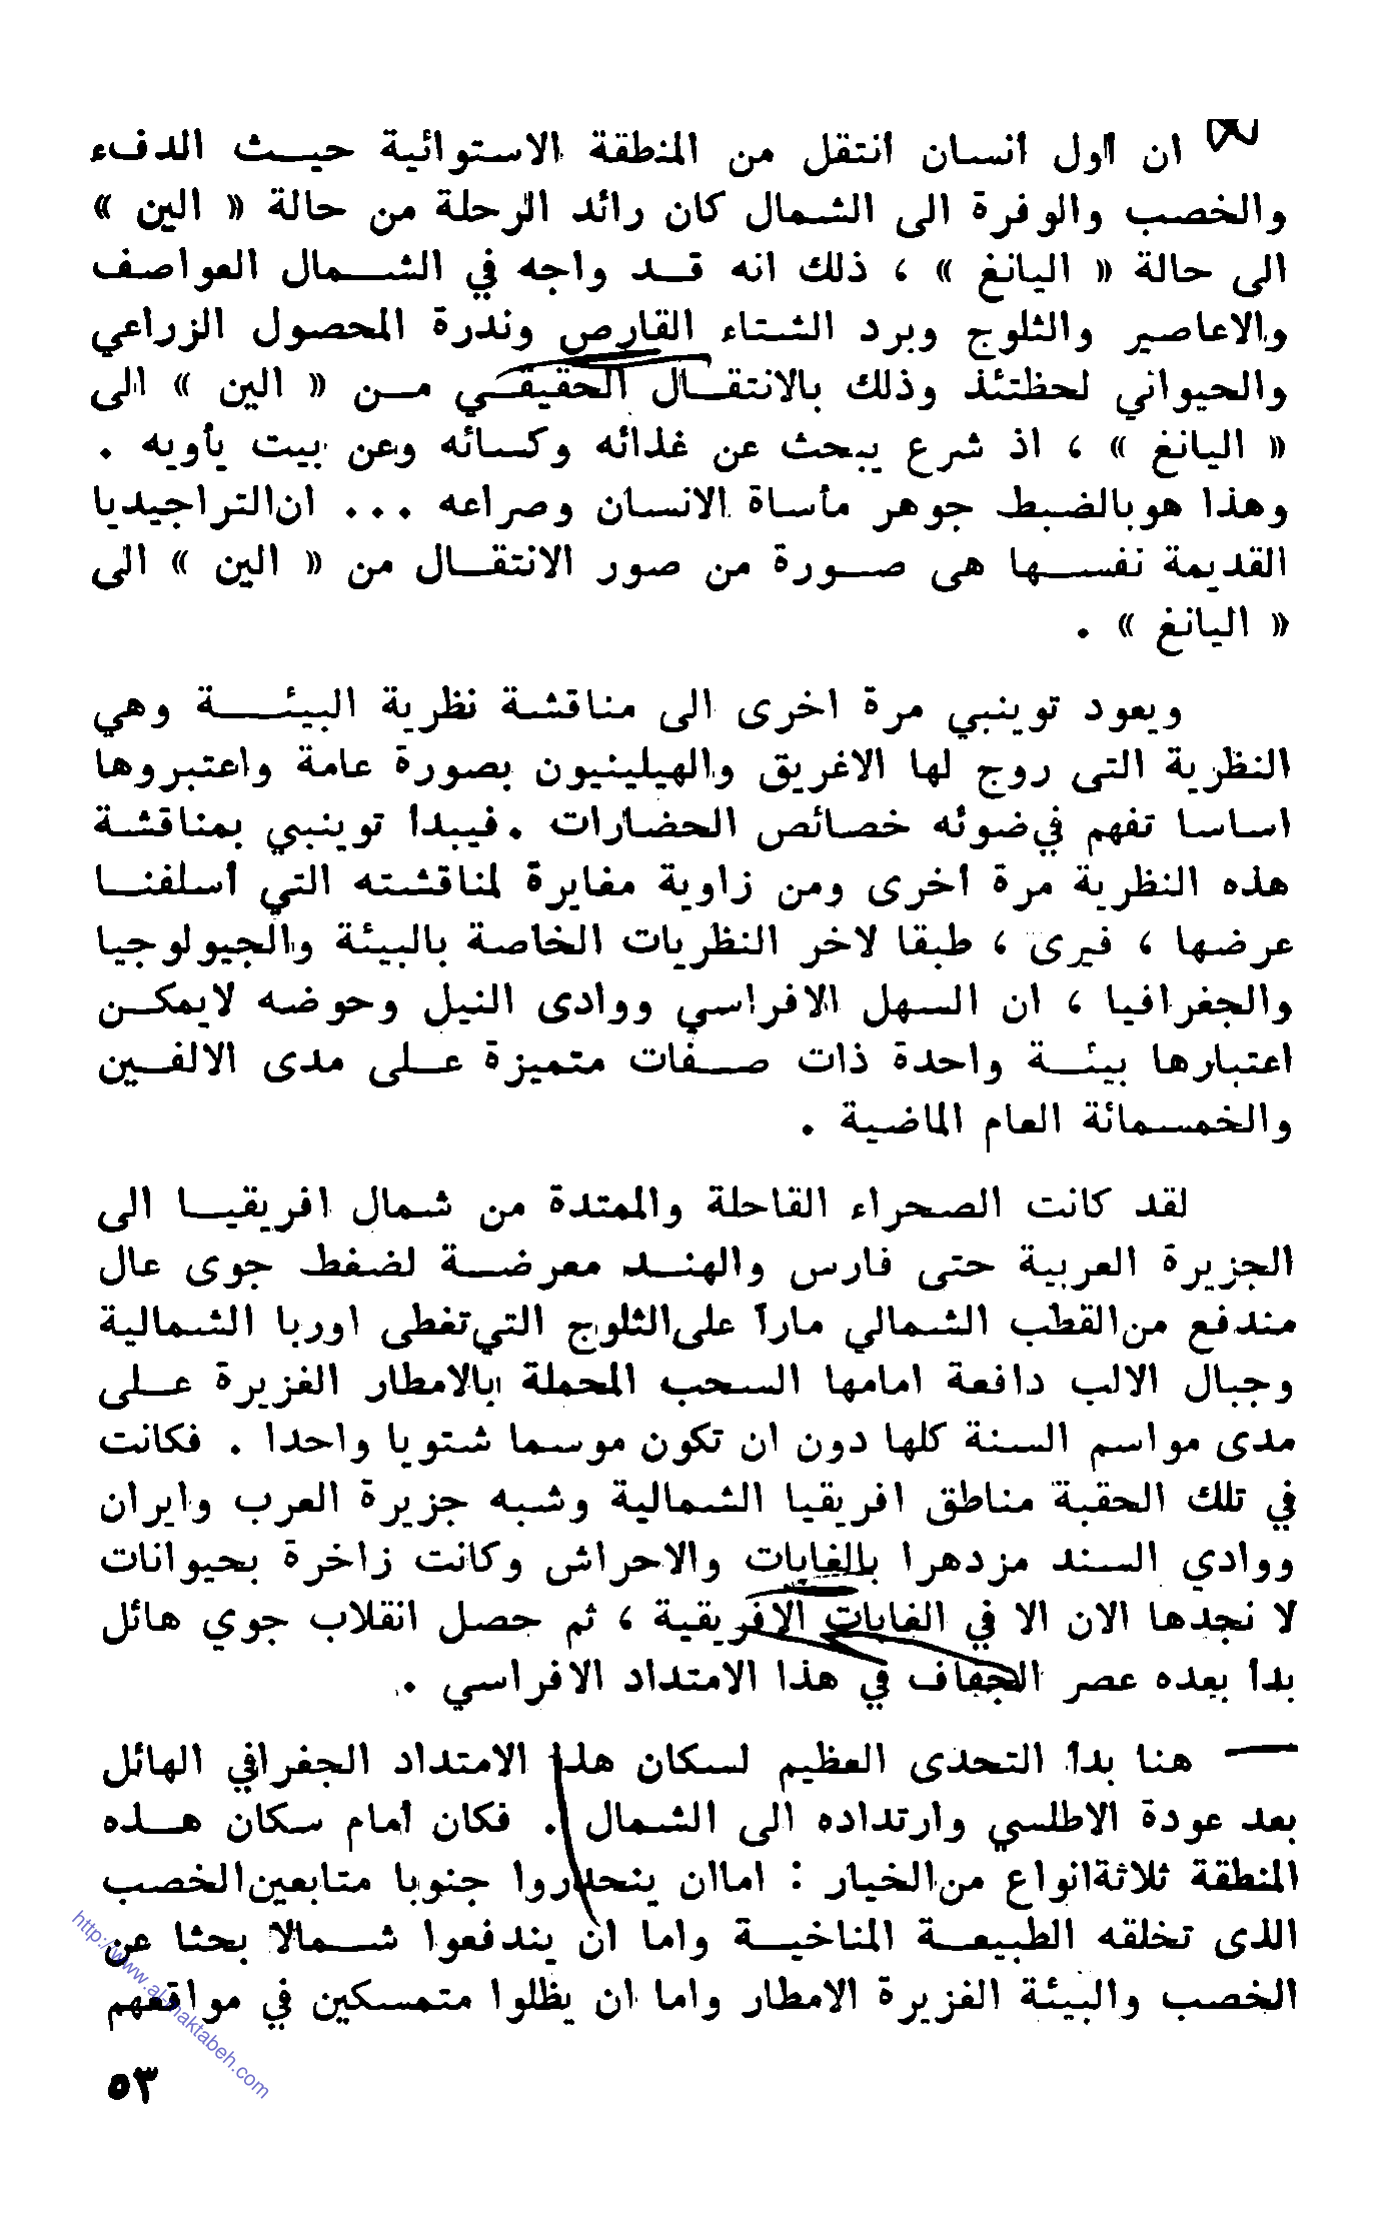 ان أول انسان انتقل من المنطقة الاستوائية حيث الدفء
والخصب والوفرة الى الشمال كان رائد الرحلة من حالة « الين »
الى حالة « اليانغ » ، ذلك انه قد واجه في الشمال العواصف
والاعاصير والثلوج وبرد الشتاء القارص وندرة المحصول الزراعي
والحيواني لحظتئذ وذلك بالانتقال الحقيقي من « الين » الى
« اليانغ » ، اذ شرع يبحث عن غذائه وكسائه وعن بيت يأويه .
وهذا هو بالضبط جوهر مأساة الانسان وصراعه ... ان التراجيديا
القديمة نفسها هى صورة من صور الانتقال من « الين » الى
« اليانغ » .
ويعود توينبي مرة اخرى الى مناقشة نظرية البيئة وهي
النظرية التى روج لها الاغريق والهيلينيون بصورة عامة واعتبروها
اساسا تفهم في ضوئه خصائص الحضارات . فيبدأ توينبي بمناقشة
هذه النظرية مرة أخرى ومن زاوية مغايرة لمناقشته التي أسلفنا
عرضها ، فيرى ، طبقا لاخر النظريات الخاصة بالبيئة والجيولوجيا
والجغرافيا ، ان السهل الافراسي ووادى النيل وحوضه لايمكن
اعتبارها بيئة واحدة ذات صفات متميزة على مدى الالفين
والخمسمائة العام الماضية .
لقد كانت الصحراء القاحلة والممتدة من شمال افريقيا الى
الجزيرة العربية حتى فارس والهند معرضة لضغط جوى عال
مندفع من القطب الشمالي ماراً على الثلوج التي تغطى اوربا الشمالية
وجبال الالب دافعة امامها السحب المحملة بالامطار الغزيرة على
مدى مواسم السنة كلها دون ان تكون موسما شتويا واحدا . فكانت
في تلك الحقبة مناطق افريقيا الشمالية وشبه جزيرة العرب وايران
ووادي السند مزدهرا بالغابات والاحراش وكانت زاخرة بحيوانات
لا نجدها الان الا في الغابات الافريقية ، ثم حصل انقلاب جوي هائل
بدأ بعده عصر الجفاف في هذا الامتداد الافراسي .
هنا بدأ التحدى العظيم لسكان هذا الامتداد الجغرافي الهائل
بعد عودة الاطلسي وارتداده الى الشمال . فكان أمام سكان هذه
المنطقة ثلاثة انواع من الخيار : اما ان ينحدروا جنوبا متابعين الخصب
الذى تخلقه الطبيعة المناخية واما ان يندفعوا شمالا بحثا عن
الخصب والبيئة الغزيرة الامطار واما ان يظلوا متمسكين في مواقعهم
٥٣
http://www.al-maktabeh.com